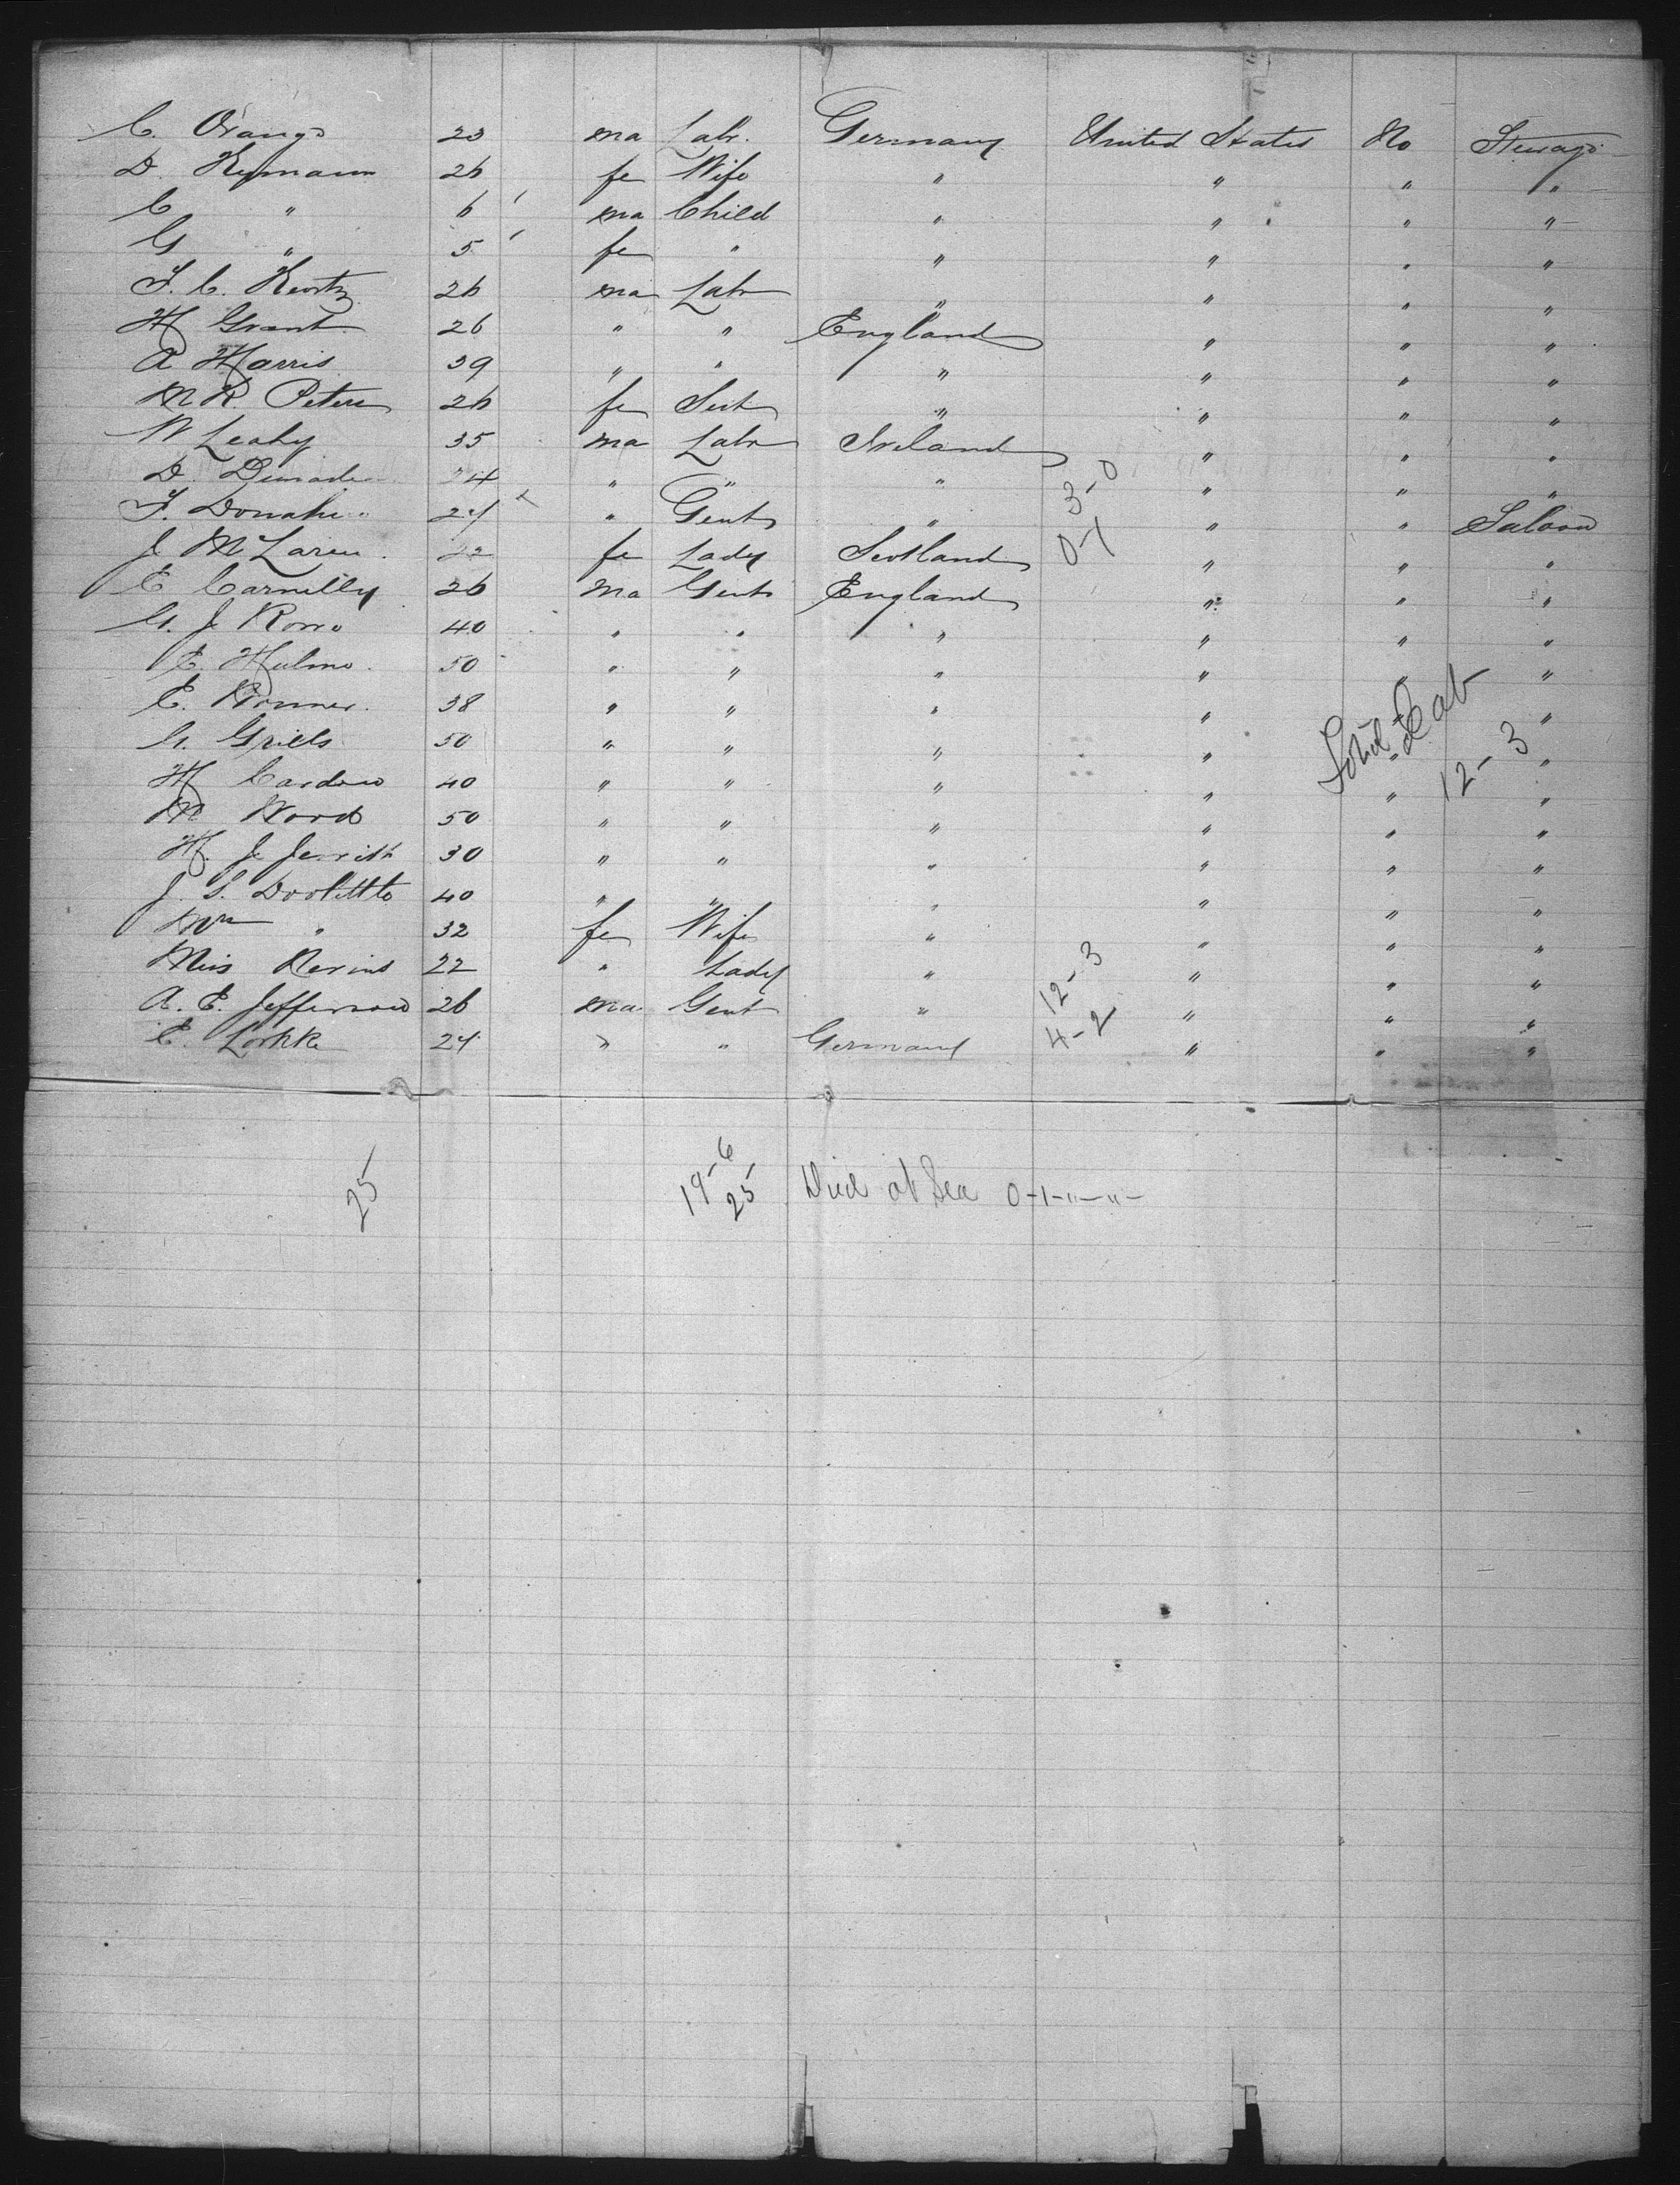 C. Orange 23 ma Labr. Germany United States No Steerage
D. Hymann 26 fe Wife " " " "
C " 6 ma Child " " " "
G " 5 fe " " " " "
F. C. Kurtz 26 ma Labr " " " "
H Grant 26 " " England " " "
A Harris 39 " " " " " "
M R. Peters 26 fe Sert " " " "
W Leahy 35 ma Labr Ireland " " "
D. 24 " " " " " "
F. Donahue 24 " Gent " 3-0 " " Saloon
J McLaren 22 fe Lady Scotland 0-1 " " "
E Carnilly 26 ma Gent England " " "
G. J Rowe 40 " " " " " "
E. Hulme 50 " " " " " "
E. Bonner 38 " " " " " "
G. Grills 50 " " " " " "
H Cardew 40 " " " " " " 12-3
M Ward 50 " " " " " "
H. J. Jerrish 30 " " " " " "
J. S. Doolittle 40 " " " " " "
Mrs " 32 fe Wife " " " "
Miss Nevins 22 " Lady " " " "
A. E. Jefferson 26 ma Gent " 12-3 " " "
E. Lorkke 24 " " Germany 4-2 " " "
25 19-6 25 Died at Sea 0-1-"-"-